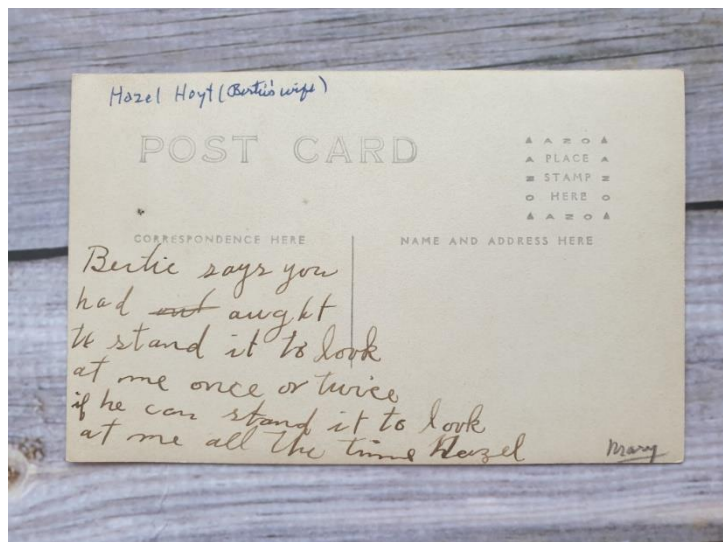 Hazel Hoyt (Bertie's wife)
POST CARD
AZO
PLACE
STAMP
HERE
AZO
CORRESPONDENCE HERE
NAME AND ADDRESS HERE
Bertie says you
had out aught
to stand it to look
at me once or twice
if he can stand it to look
at me all the time Hazel
Mary